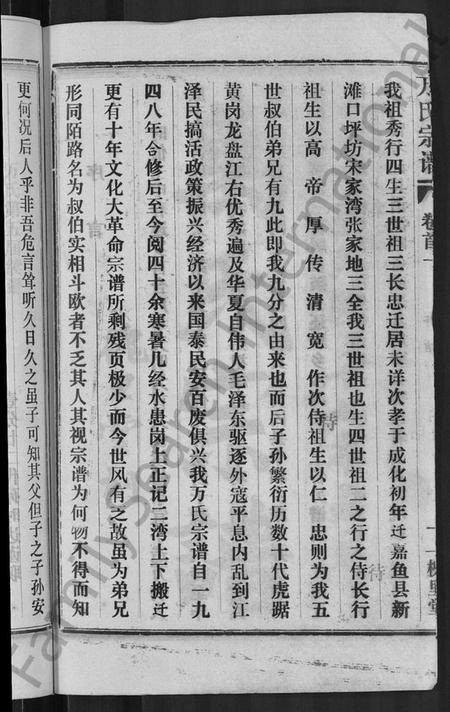 万氏宗谱
卷首一
一
槐里堂
我祖秀行四生三世祖三长忠迁居未详次孝于成化初年迁嘉鱼县新
滩口坪坊宋家湾张家地三全我三世祖也生四世祖二之行之侍长行
祖生以高帝厚传清宽作次侍祖生以仁忠则为我五
世叔伯弟兄有九此即我九分之由来也而后子孙繁衍历数十代虎踞
黄岗龙盘江右优秀遍及华夏自伟人毛泽东驱逐外寇平息内乱到江
泽民搞活政策振兴经济以来国泰民安百废俱兴我万氏宗谱自一九
四八年合修后至今阅四十余寒暑几经水患岗上正记二湾上下搬迁
更有十年文化大革命宗谱所剩残页极少而今世风有之故虽为弟兄
形同陌路名为叔伯实相斗欧者不乏其人其视宗谱为何物不得而知
更何况后人乎非吾危言耸听久日久之虽子可知其父但子之子孙安
侍
待
FamilySearch International